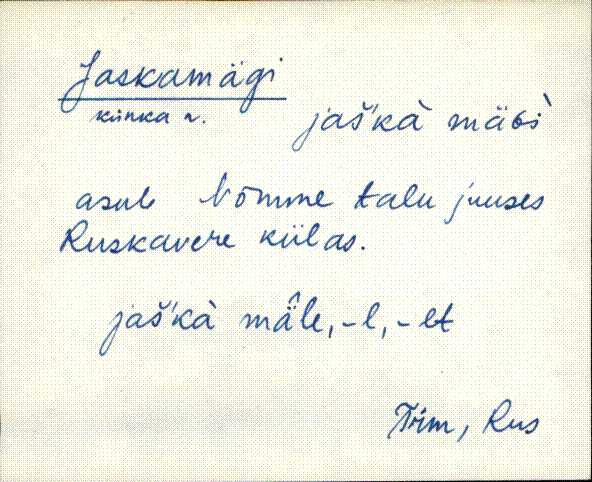 Jaskamägi
künka n.
jaš'kà mäGì
asub Nõmme talu juures
Ruskavere külas.
jaš'kà mä̂le, -l, -lt
Trm, Rus